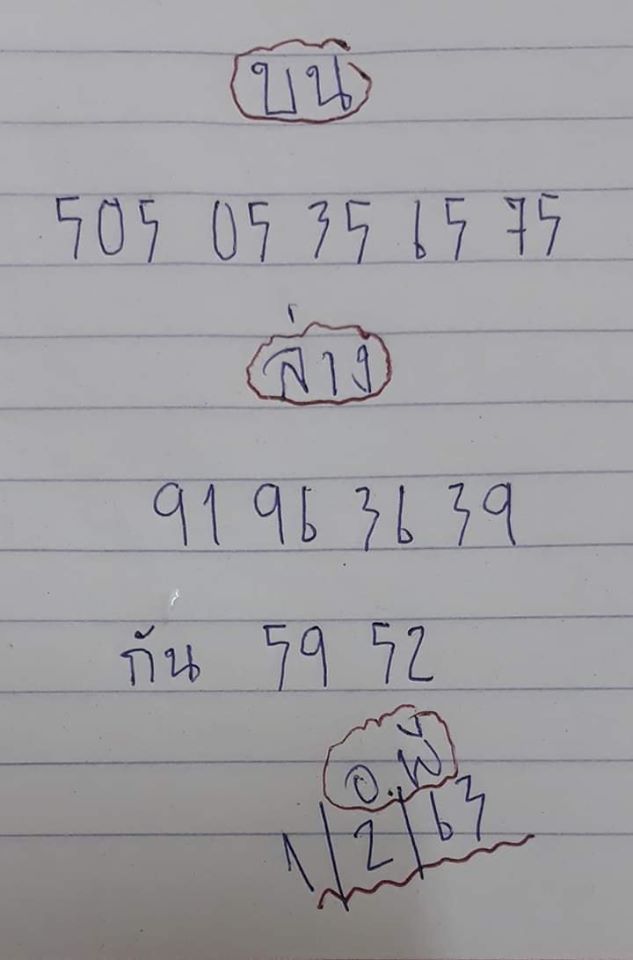 บน
505 05 35 65 75
ล่าง
91 96 36 39
กัน 59 52
อ.พี
1/2/63